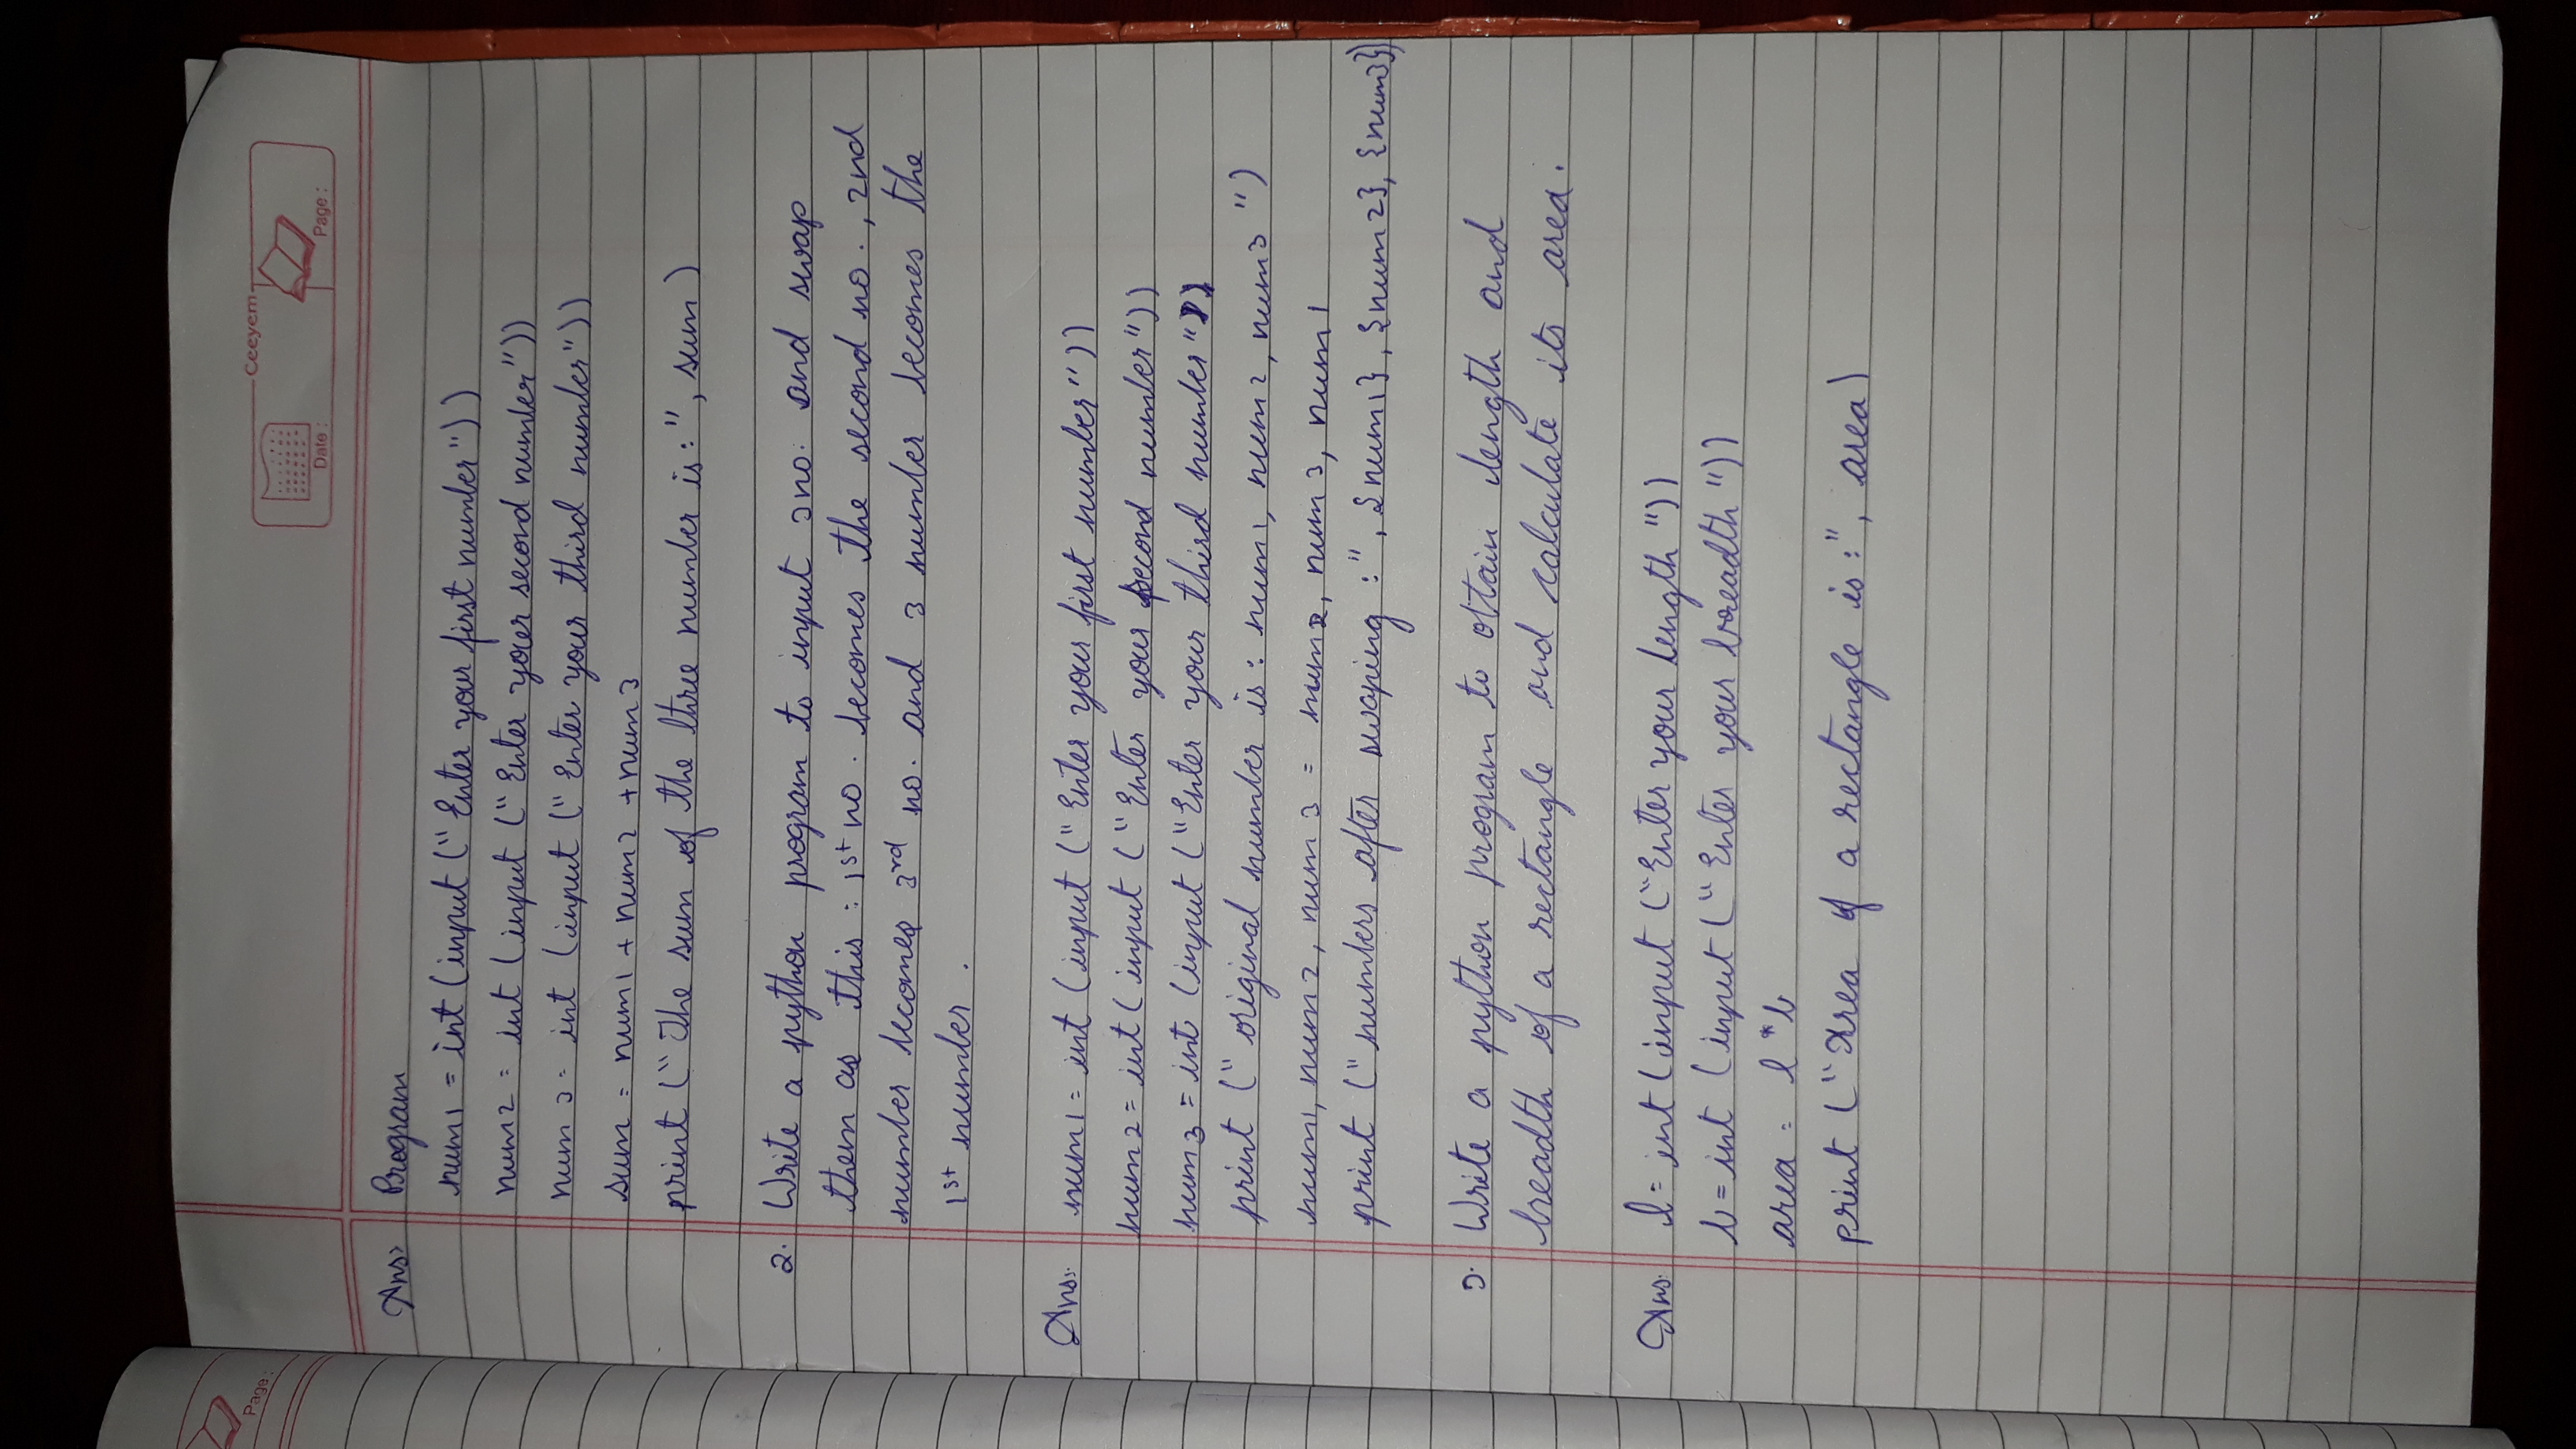 Ceeyem
Date :
Page :
Ans> Program
num1 = int (input (" Enter your first number"))
num2 = int (input (" Enter your second number"))
num 3 = int (input (" Enter your third number"))
sum = num1 + num2 + num3
print (" The sum of the three number is :", sum)
2. Write a python program to input 3 no. and swap
them as this : 1st no. becomes the second no., 2nd
number becomes 3rd no. and 3 number becomes the
1st number .
Ans. num1 = int (input (" Enter your first number"))
num2 = int (input (" Enter your second number"))
num3 = int (input (" Enter your third number"))
print (" original number is : num1, num2, num3 ")
num1, num2, num 3 = num2, num3, num1
print (" numbers after swaping :", {num1}, {num2}, {num3})
3. Write a python program to obtain length and
breadth of a rectangle and calculate its area.
Ans. l = int (input (" Enter your length "))
b = int (input (" Enter your breadth "))
area = l * b
print (" Area of a rectangle is :", area)
Page :